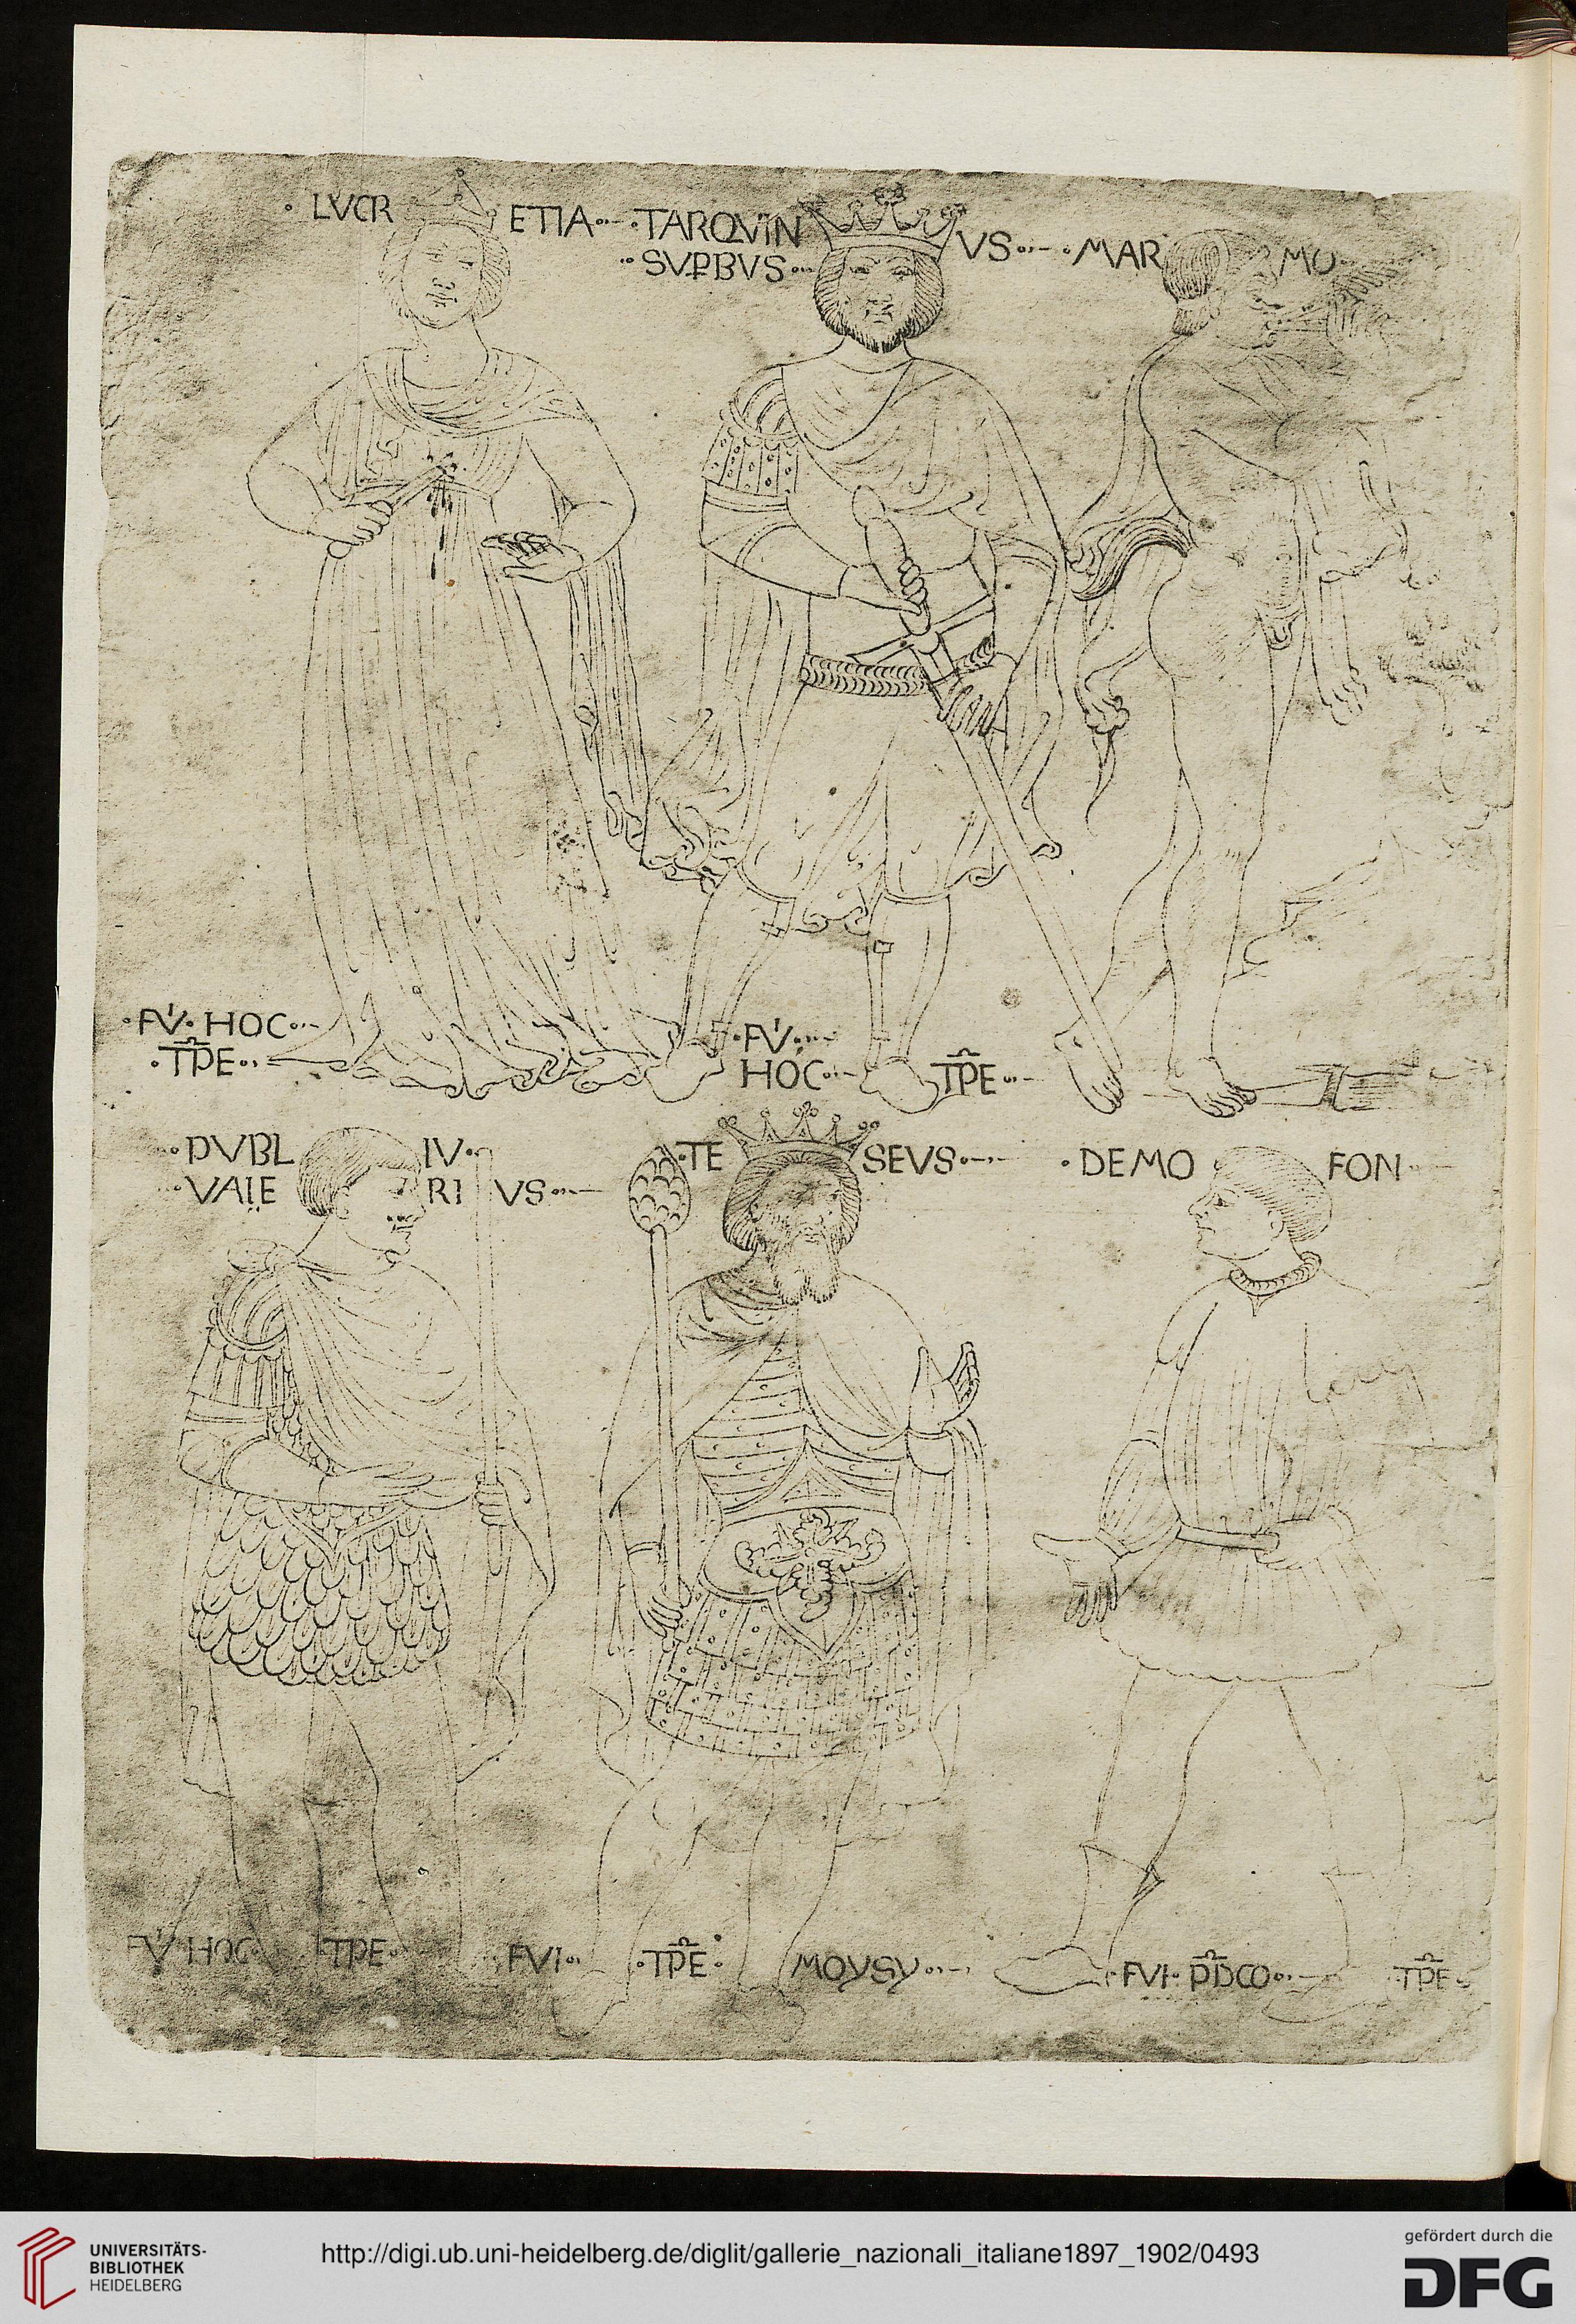 · LVCR ETIA ·
· TARQVIN VS ·
· SVPBVS ·
· MAR MO
· FV · HOC ·
· TPE ·
· FV ·
HOC · TPE ·
· PVBL IV ·
· VALE RI VS ·
· TE SEVS ·
· DEMO FON ·
FV HOC · TPE ·
· FVI · · TPE · MOYSY ·
· FVI · PDCO · · TPE ·
UNIVERSITÄTS-
BIBLIOTHEK
HEIDELBERG
http://digi.ub.uni-heidelberg.de/diglit/gallerie_nazionali_italiane1897_1902/0493
gefördert durch die
DFG